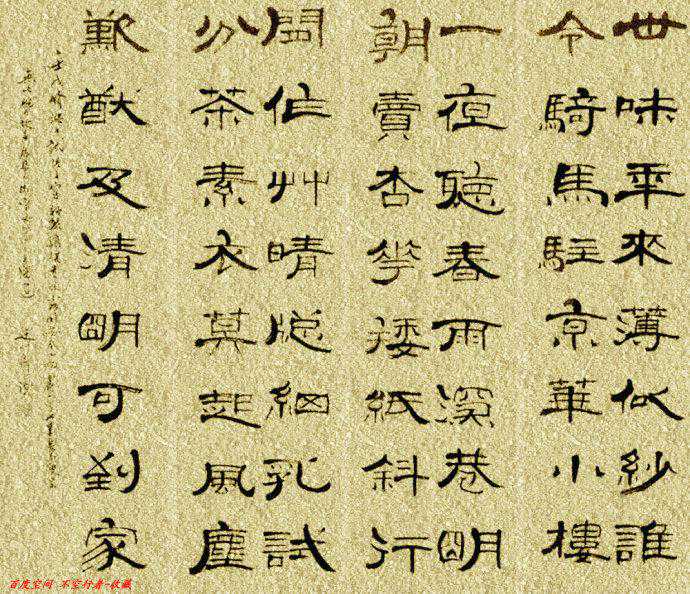 世味年來薄似紗誰
令騎馬駐京華小樓
一夜聽春雨深巷明
朝賣杏花矮紙斜行
閒作艸晴窗細乳試
分茶素衣莫起風塵
歎猷及清明可到家
百度空间 不空行者-收藏